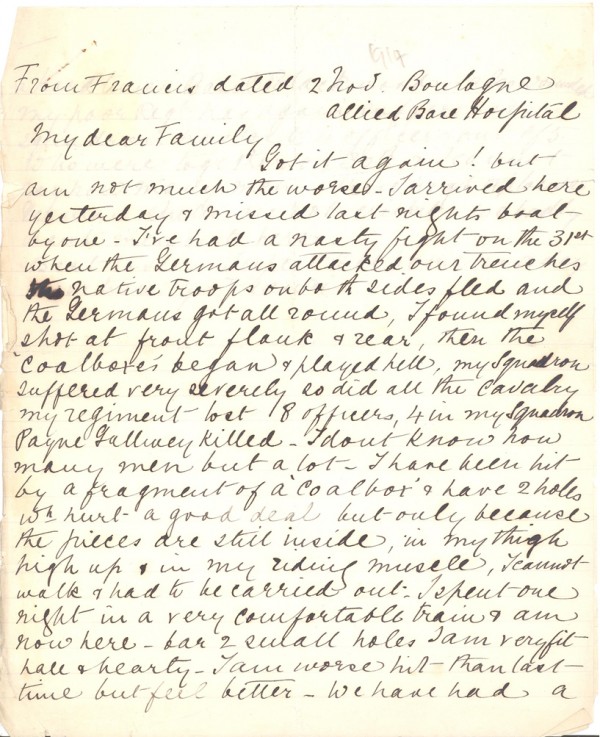 1917
From Francis dated 2 Nov. Boulogne
Allied Base Hospital
My dear Family
Got it again! but
am not much the worse - I arrived here
yesterday & missed last nights boat
by one - I've had a nasty fight on the 31st
when the Germans attacked our trenches
native troops on both sides fled and
the Germans got all round, I found myself
shot at front flank & rear, then the
"coalboxes" began & played hell, my Squadron
suffered very severely so did all the Cavalry
my regiment lost 8 officers, 4 in my Squadron
Payne Gallwey killed - I dont know how
many men but a lot - I have been hit
by a fragment of a "coalbox" & have 2 holes
wh hurt a good deal but only because
the pieces are still inside, in my thigh
high up & in my riding muscle, I cannot
walk & had to be carried out - I spent one
night in a very comfortable train & am
now here - bar 2 small holes I am very fit
hale & hearty - I am worse hit than last
time but feel better - We have had a